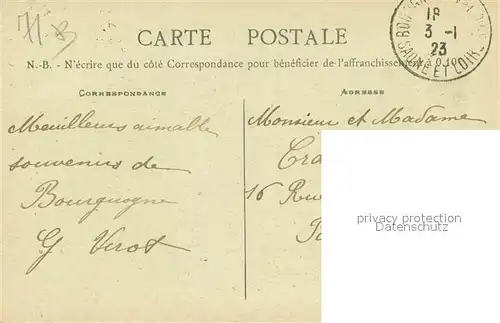 CARTE POSTALE
N.-B. - N'écrire que du côté Correspondance pour bénéficier de l'affranchissement à 0.10
18
3 -1
23
SAONE ET LOIRE
CORRESPONDANCE
ADRESSE
Meuilleurs aimable
souvenirs de
Bourguogne
G. Verot
Monsieur et Madame
Cra
16 Rue
privacy protection
protection vie privée